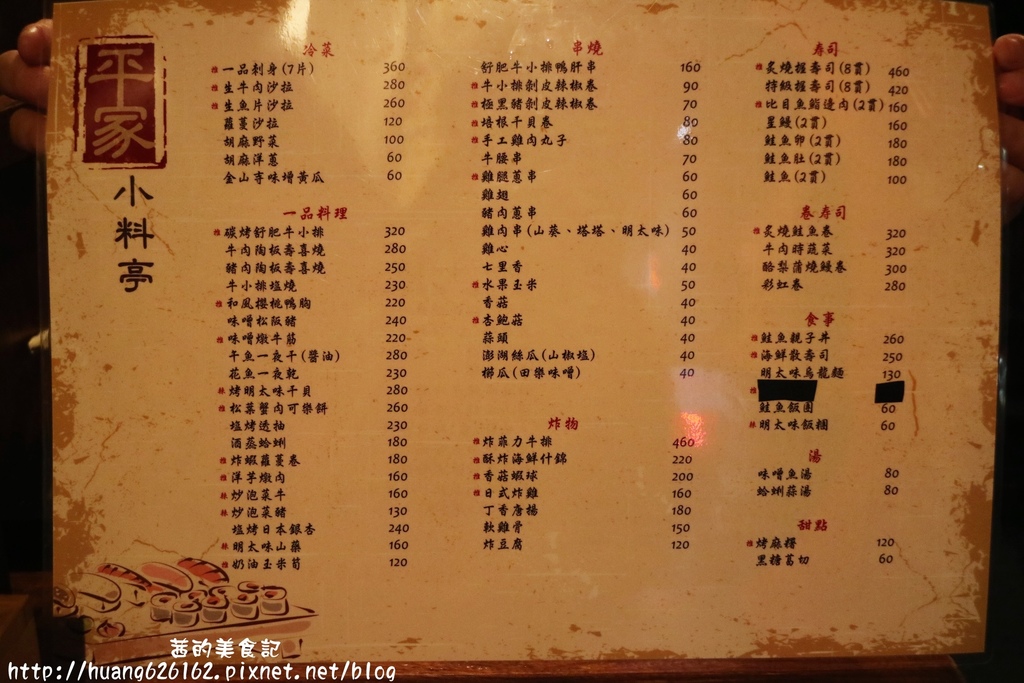 平家
小料亭
冷菜
推 一品刺身(7片) 360
推 生牛肉沙拉 280
推 生魚片沙拉 260
蘿蔓沙拉 120
胡麻野菜 100
胡麻洋蔥 60
金山寺味增黃瓜 60
一品料理
推 碳烤舒肥牛小排 320
牛肉陶板壽喜燒 280
豬肉陶板壽喜燒 250
牛小排塩燒 230
推 和風櫻桃鴨胸 220
味噌松阪豬 240
推 味噌燉牛筋 220
午魚一夜干(醬油) 280
花魚一夜乾 230
辣 烤明太味干貝 280
推 松葉蟹肉可樂餅 260
塩烤透抽 230
酒蒸蛤蜊 180
推 炸蝦蘿蔓卷 180
推 洋芋燉肉 160
辣 炒泡菜牛 160
辣 炒泡菜豬 130
塩烤日本銀杏 240
辣 明太味山藥 160
推 奶油玉米筍 120
串燒
舒肥牛小排鴨肝串 160
推 牛小排剝皮辣椒卷 90
推 極黑豬剝皮辣椒卷 70
推 培根干貝卷 80
推 手工雞肉丸子 80
牛腰串 70
推 雞腿蔥串 60
雞翅 60
豬肉蔥串 60
雞肉串(山葵、塔塔、明太味) 50
雞心 40
七里香 40
推 水果玉米 50
香菇 40
推 杏鮑菇 40
蒜頭 40
澎湖絲瓜(山椒塩) 40
櫛瓜(田樂味噌) 40
炸物
推 炸菲力牛排 460
推 酥炸海鮮什錦 220
推 香菇蝦球 200
推 日式炸雞 160
丁香唐揚 180
軟雞骨 150
炸豆腐 120
寿司
推 炙燒握壽司(8貫) 460
特級握壽司(8貫) 420
推 比目魚鰭邊肉(2貫) 160
星鰻(2貫) 160
鮭魚卵(2貫) 180
鮭魚肚(2貫) 180
鮭魚(2貫) 100
卷寿司
推 炙燒鮭魚卷 320
牛肉時蔬菜 320
酪梨蒲燒鰻卷 300
彩虹卷 280
食事
推 鮭魚親子丼 260
推 海鮮散壽司 250
明太味烏龍麵 130
推
鮭魚飯團 60
辣 明太味飯糰 60
湯
味噌魚湯 80
蛤蜊蒜湯 80
甜點
推 烤麻糬 120
黑糖葛切 60
茜的美食記
http://huang626162.pixnet.net/blog